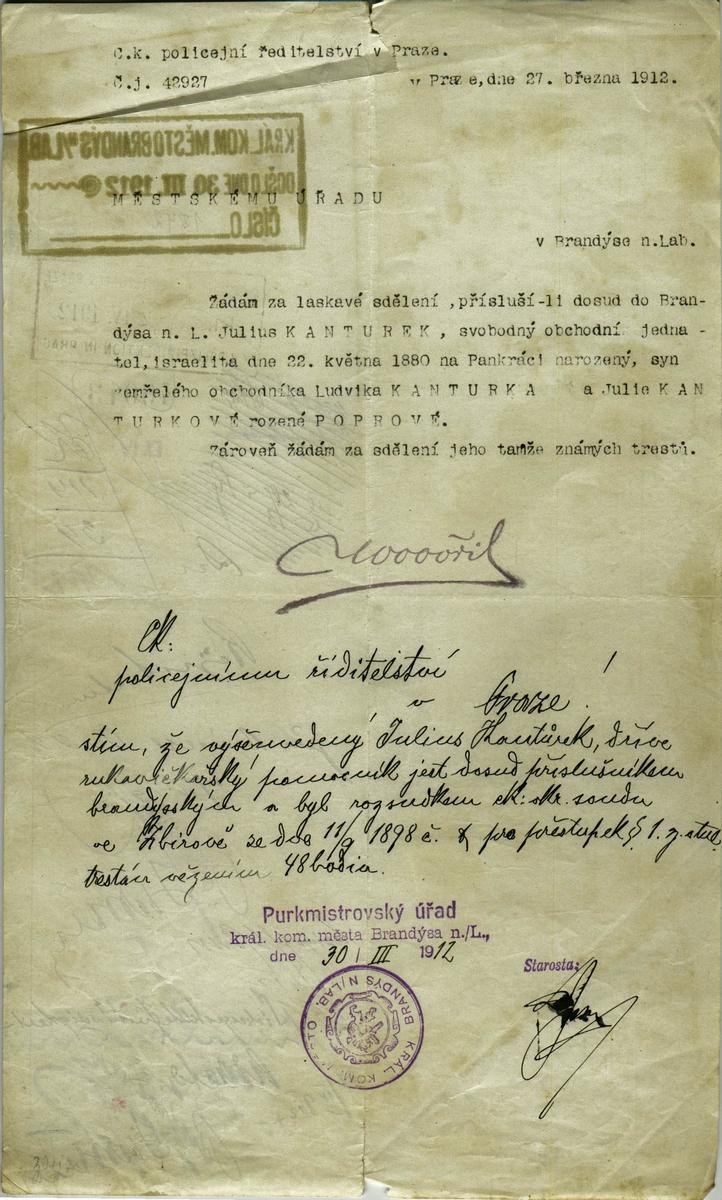 C.k. policejní ředitelství v Praze.
Č.j. 42927 v Praze, dne 27. března 1912.
KRÁL. KOM. MĚSTO BRANDÝS n/LAB.
DOŠLO DNE 30 III. 1912
ČÍSLO
MĚSTSKÉMU ÚŘADU
v Brandýse n.Lab.
Žádám za laskavé sdělení, přísluší-li dosud do Bran-
dýsa n. L. Julius KANTUREK, svobodný obchodní jedna-
tel, israelita dne 22. května 1880 na Pankráci narozený, syn
zemřelého obchodníka Ludvíka KANTURKA a Julie KAN
TURKOVÉ rozené POPROVÉ.
Zároveň žádám za sdělení jeho tamže známých trestů.
Ck:
policejnímu řiditelství
v Praze!
stím, že výšezvedený Julius Kantůrek, dříve
rukavičkářský pomocník jest dosud příslušníkem
brandýsským a byl rozsudkem ck: okr. soudu
ve Zbirově ze dne 11/9 1898 č. pro přestupek § 1. z.
trestán vězením 48 hodin.
Purkmistrovský úřad
král. kom. města Brandýsa n./L.,
dne 30/III 1912
Starosta:
KRÁL. KOM. MĚSTO BRANDÝS N/LAB.